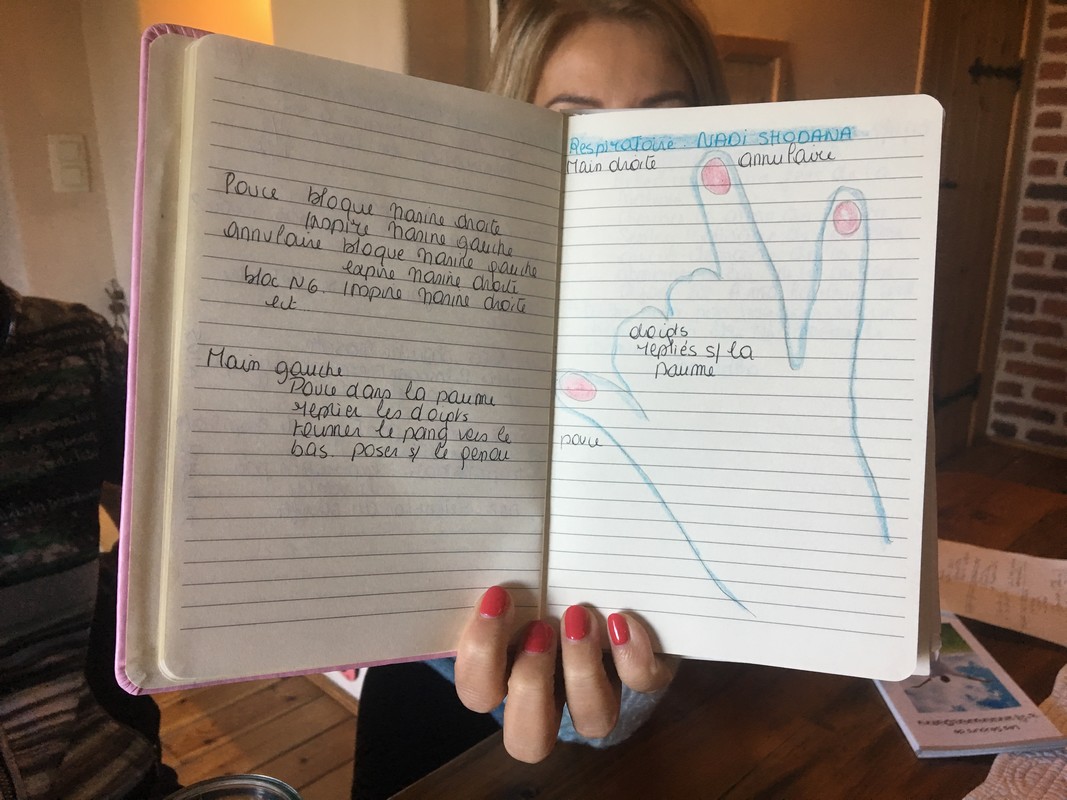 Pouce bloque narine droite
inspire narine gauche
annulaire bloque narine gauche
expire narine droite
bloc NG inspire narine droite
ect
Main gauche
Pouce dans la paume
replier les doigts
tourner le poing vers le
bas poser s/ le genou
Respiratoire NADi SHODANA
Main droite
annulaire
doigts
repliés s/ la
paume
pouce
Les Séjours de